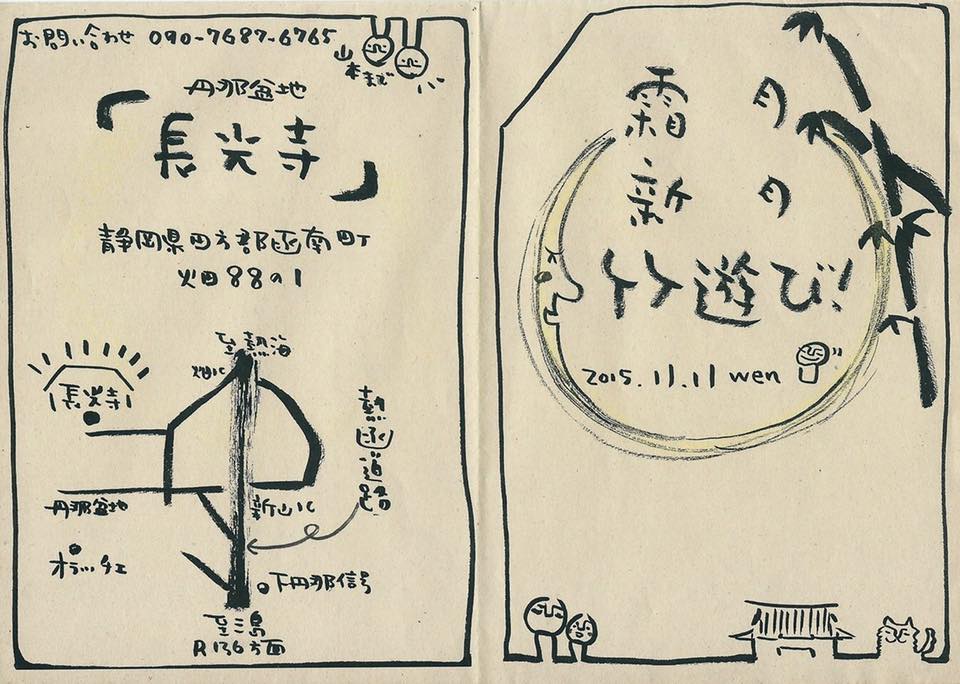 お問い合わせ 090-7687-6765
山本まど
丹那盆地
「長光寺」
静岡県田方郡函南町
畑88の1
至熱海
畑IC
長光寺
熱函道路
丹那盆地
新山IC
オラッチェ
下丹那信号
至三島
R136方面
霜月
新月
竹遊び!
2015.11.11 wen